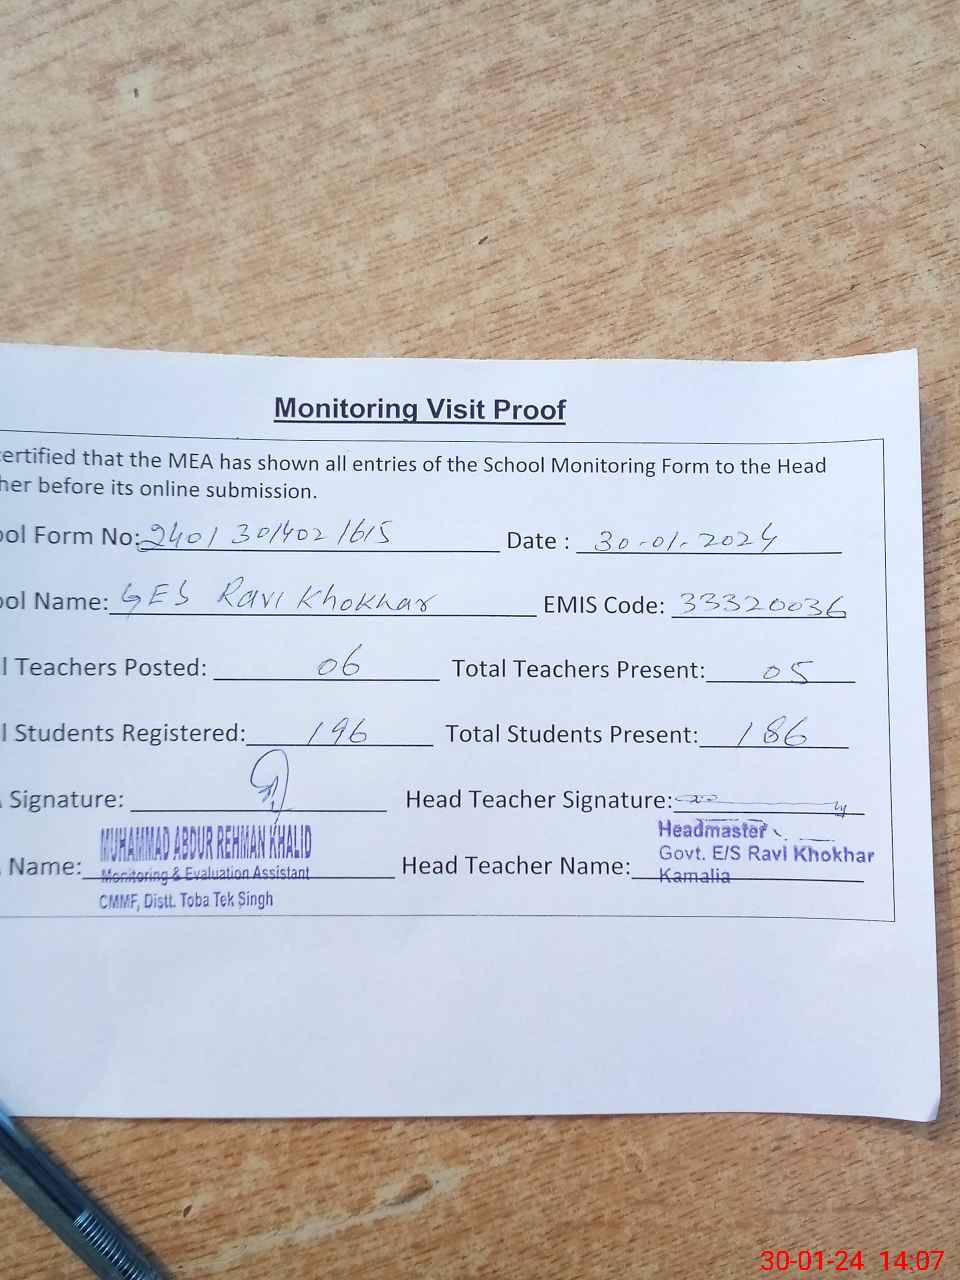 Monitoring Visit Proof
certified that the MEA has shown all entries of the School Monitoring Form to the Head
her before its online submission.
ool Form No: 2401 301402 1615 Date : 30-01-2024
ool Name: GES Ravi Khokhar EMIS Code: 33320036
l Teachers Posted: 06 Total Teachers Present: 05
l Students Registered: 196 Total Students Present: 186
Signature: Head Teacher Signature:
Name: MUHAMMAD ABDUR REHMAN KHALID
Monitoring & Evaluation Assistant
CMMF, Distt. Toba Tek Singh
Head Teacher Name: Headmaster
Govt. E/S Ravi Khokhar
Kamalia
30-01-24 14:07